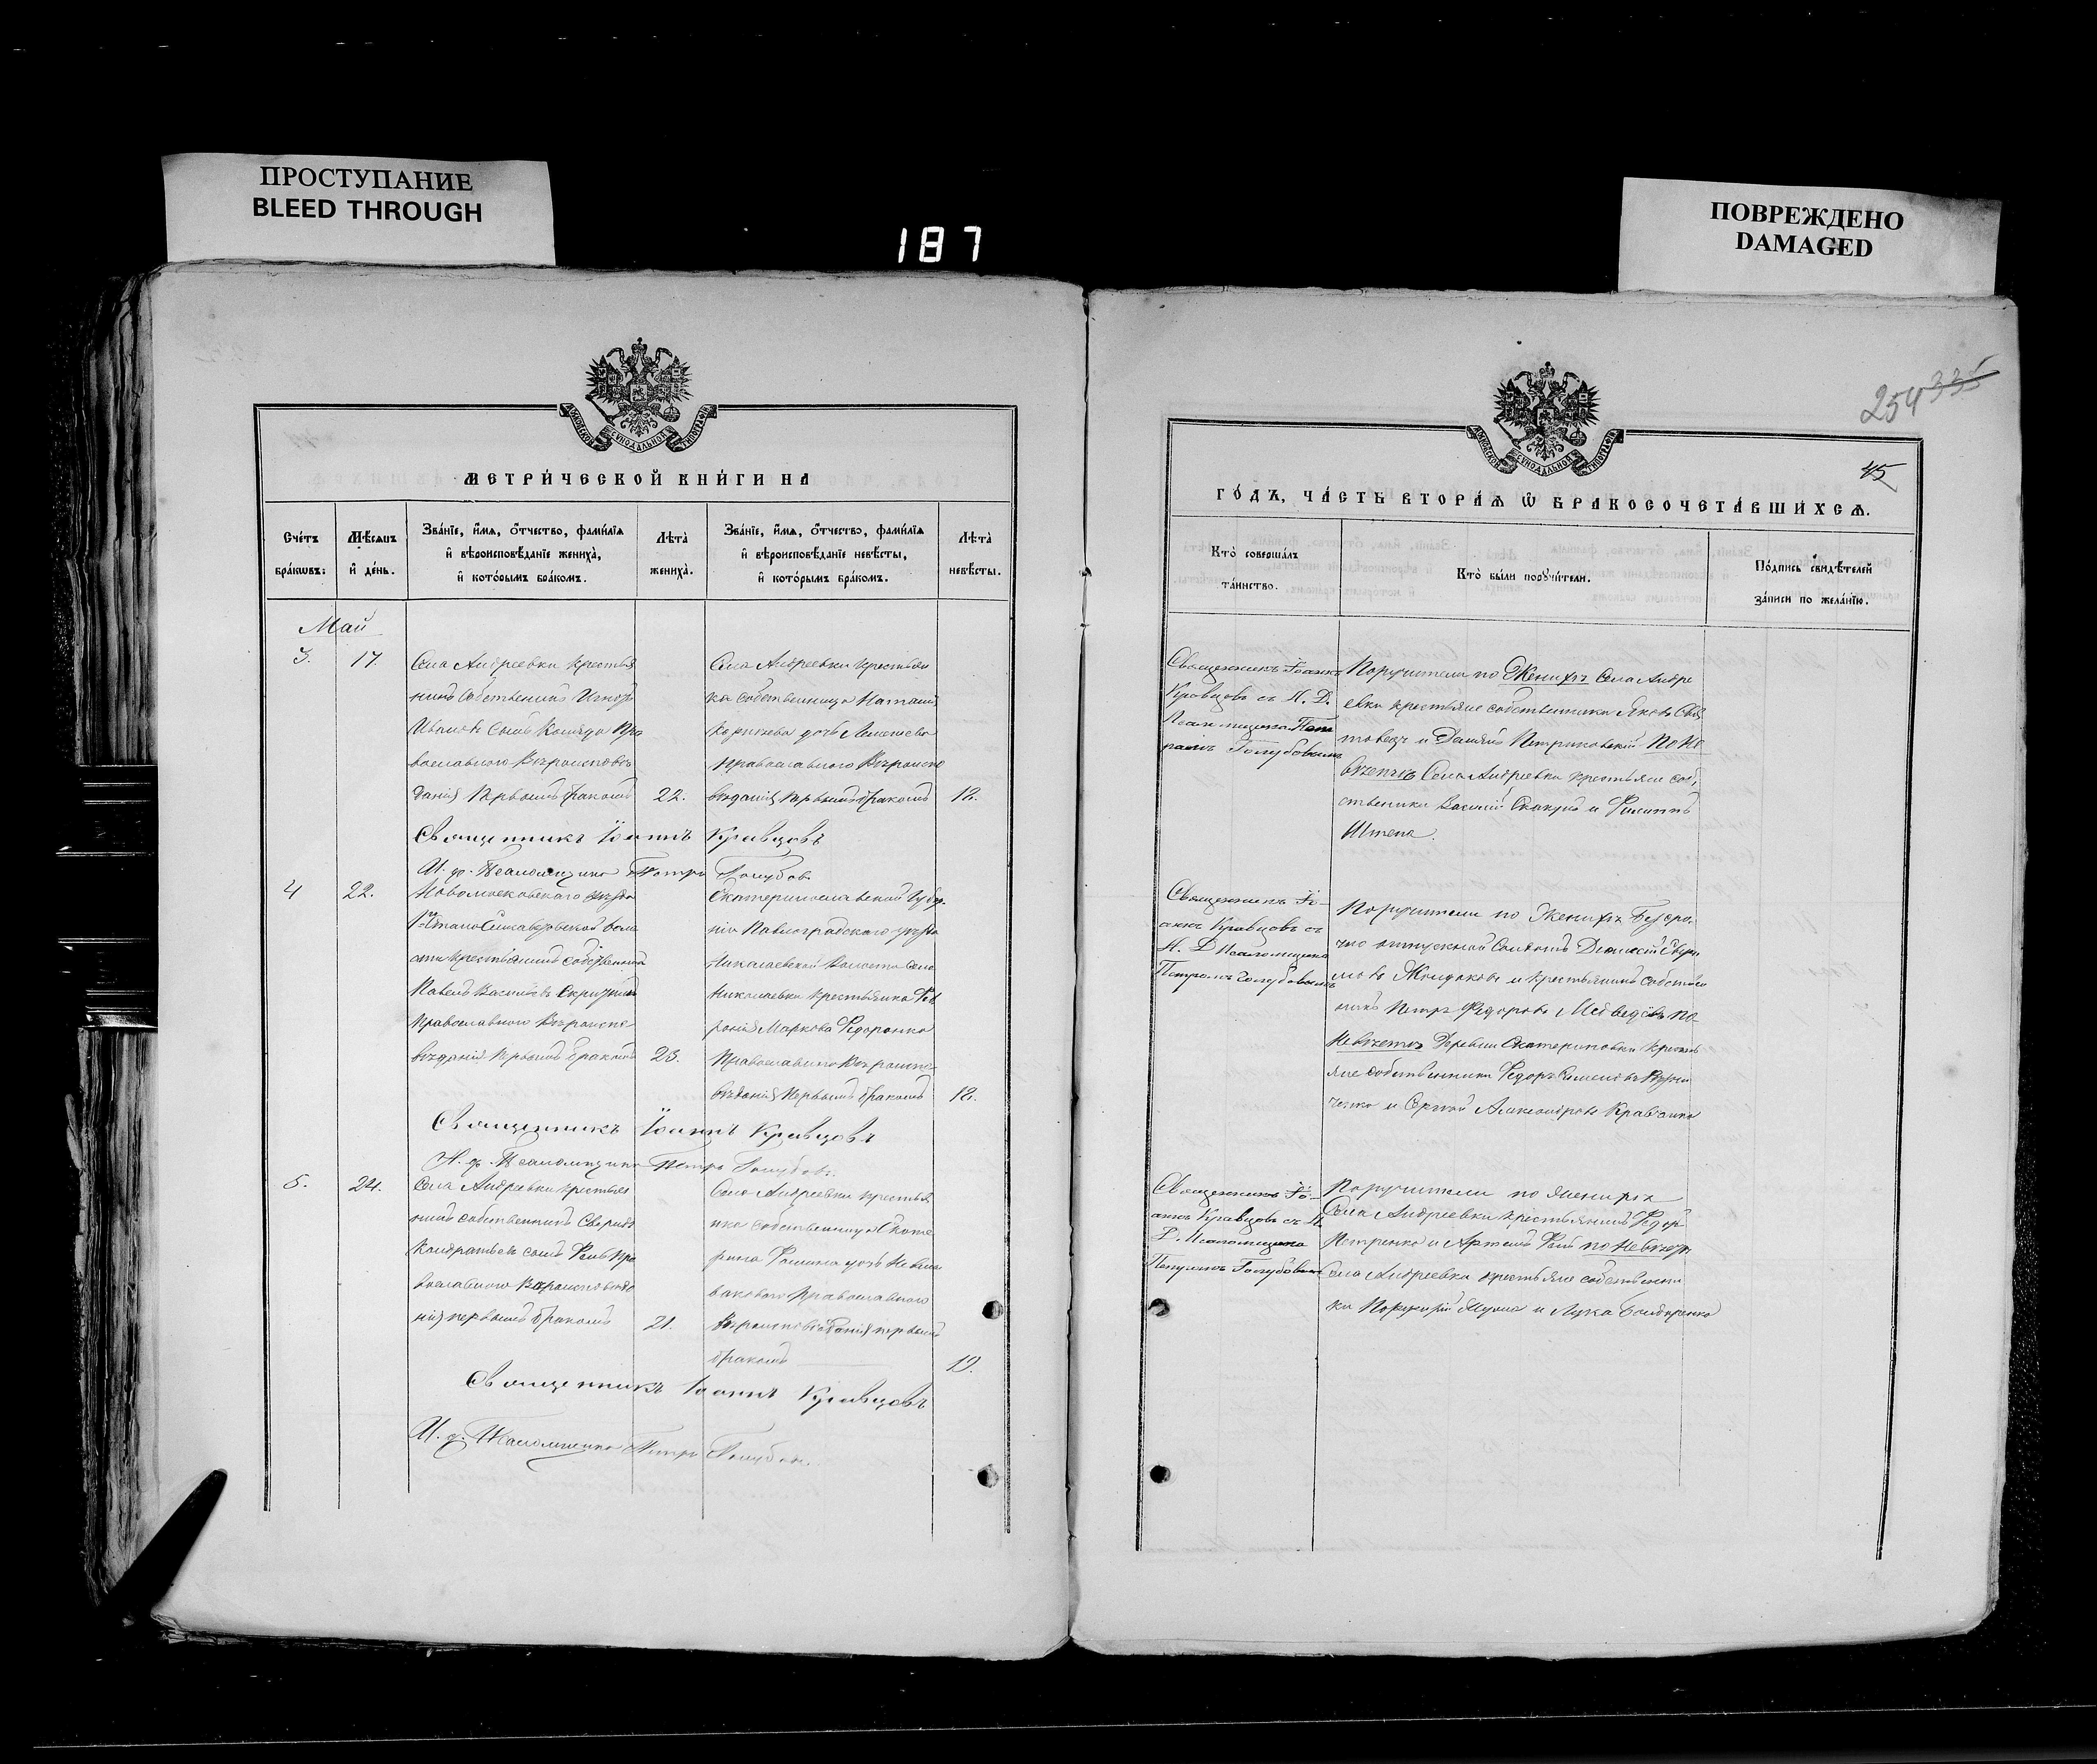 ПРОСТУПАНИЕ
BLEED THROUGH
187
ПОВРЕЖДЕНО
DAMAGED
МЕТРИ́ЧЕСКОЙ КНИ́ГИ НА
Сче́тъ бра́кωвъ:
Мѣ́сяцъ и҆ де́нь.
Зва́нїе, и҆́мѧ, ѻ҆́тчество, фами́лїѧ
и҆ вѣроисповѣ́данїе жениха̀,
и҆ кото́рымъ бра́комъ.
Лѣта̀ жениха̀.
Зва́нїе, и҆́мѧ, ѻ҆́тчество, фами́лїѧ
и҆ вѣроисповѣ́данїе невѣ́сты,
и҆ кото́рымъ бра́комъ.
Лѣта̀ невѣ́сты.
Май
3.
17.
Села Андреевки крестья
нинъ собственникъ
Ивановъ сынъ Коляда пра
вославного вѣроисповѣ
данія первымъ бракомъ
22.
Села Андреевки крестьян
ка собственница Наталія
дочь
православного вѣроиспо
вѣданія первымъ бракомъ
18.
Священникъ Іоаннъ Кравцовъ
И. д. Псаломщика Петръ Голубовъ
4
22.
Новомосковского уѣзда
воло
сти крестьянинъ собственникъ
Павелъ Васильевъ
православного вѣроиспо
вѣданія первымъ бракомъ
23.
Екатеринославской губер
ніи Павлоградского уѣзда
Николаевской волости села
Николаевки крестьянка Фев
ронія Маркова Федоренко
православного вѣроиспо
вѣданія первымъ бракомъ
18.
Священникъ Іоаннъ Кравцовъ
И. д. Псаломщика Петръ Голубовъ.
5.
24.
Села Андреевки крестья
нинъ собственникъ Свиридъ
Кондратьевъ сынъ пра
вославного вѣроисповѣда
нія первымъ бракомъ
21.
Села Андреевки крестья
нка собственница Екате
рина Фомина дочь
православного
вѣроисповѣданія первымъ
бракомъ
19.
Священникъ Іоаннъ Кравцовъ
И. д. Псаломщика Петръ Голубовъ.
254 335
45
ГО́ДЪ, ЧА́СТЬ ВТОРА́Ѧ Ѡ҆ БРАКОСОЧЕТА́ВШИХСѦ.
Кто̀ соверша́лъ та́инство.
Кто̀ бы́ли порꙋчи́тели.
По́дпись свидѣ́телей за́писи по жела́нїю.
Священникъ Іоаннъ
Кравцовъ съ И. Д.
Псаломщика Пет
ромъ Голубовымъ
Поручители по Женихѣ Села Андре
евки крестьяне собственники Яковъ
и Петриковскій по не
вѣстѣ Села Андреевки крестьяне соб
ственники Василій Скакунъ и Филиппъ
Штепа.
Священникъ Іо-
аннъ Кравцовъ съ
И. Д. Псаломщика
Петромъ Голубовымъ
Поручители по Женихѣ Безсро
чно отпускной Солдатъ
и крестьянинъ собствен
никъ Петръ Федоровъ Медведевъ по
Невѣстѣ Деревни Екатериновки кресть
яне собственники Федоръ Семеновъ
и Сергей Александровъ Кравченко
Священникъ Іо-
аннъ Кравцовъ съ И.
Д. Псаломщика
Петромъ Голубовымъ
Поручители по Женихѣ
Села Андреевки крестьянинъ Федоръ
Петренко и Артемъ по Невѣстѣ
Села Андреевки крестьяне собственни
ки Порфирій и Лука Бондаренко